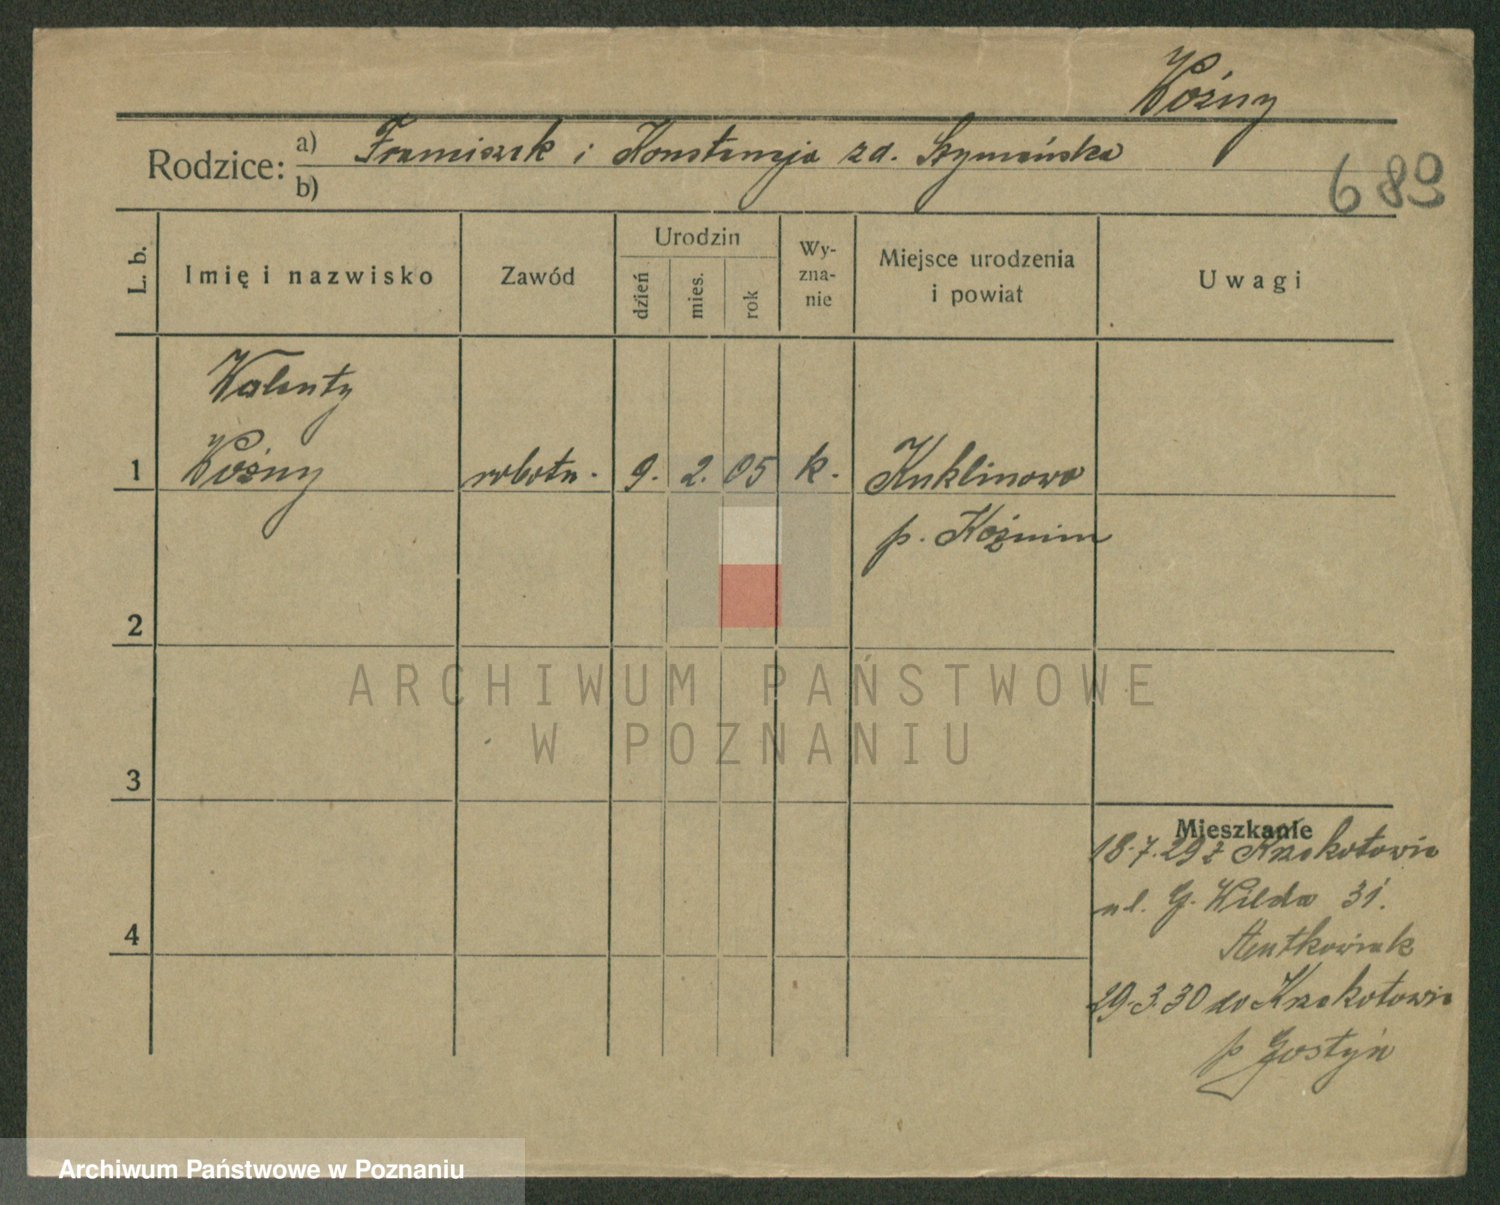 Woźny
Rodzice: a) Franciszek i Konstancja zd. Szymańska
b)
689
L. b.
Imię i nazwisko
Zawód
Urodzin
dzień
mies.
rok
Wy-
zna-
nie
Miejsce urodzenia
i powiat
Uwagi
Walenty
1 Woźny robotn. 9. 2. 05 k. Kuklinowo
p. Koźmin
2
ARCHIWUM PAŃSTWOWE
W POZNANIU
3
Mieszkanie
18.7.29 z Krzekotowic
4
ul. G. Wilda 31.
29.3.30 do Krzekotowic
p Gostyń
Archiwum Państwowe w Poznaniu